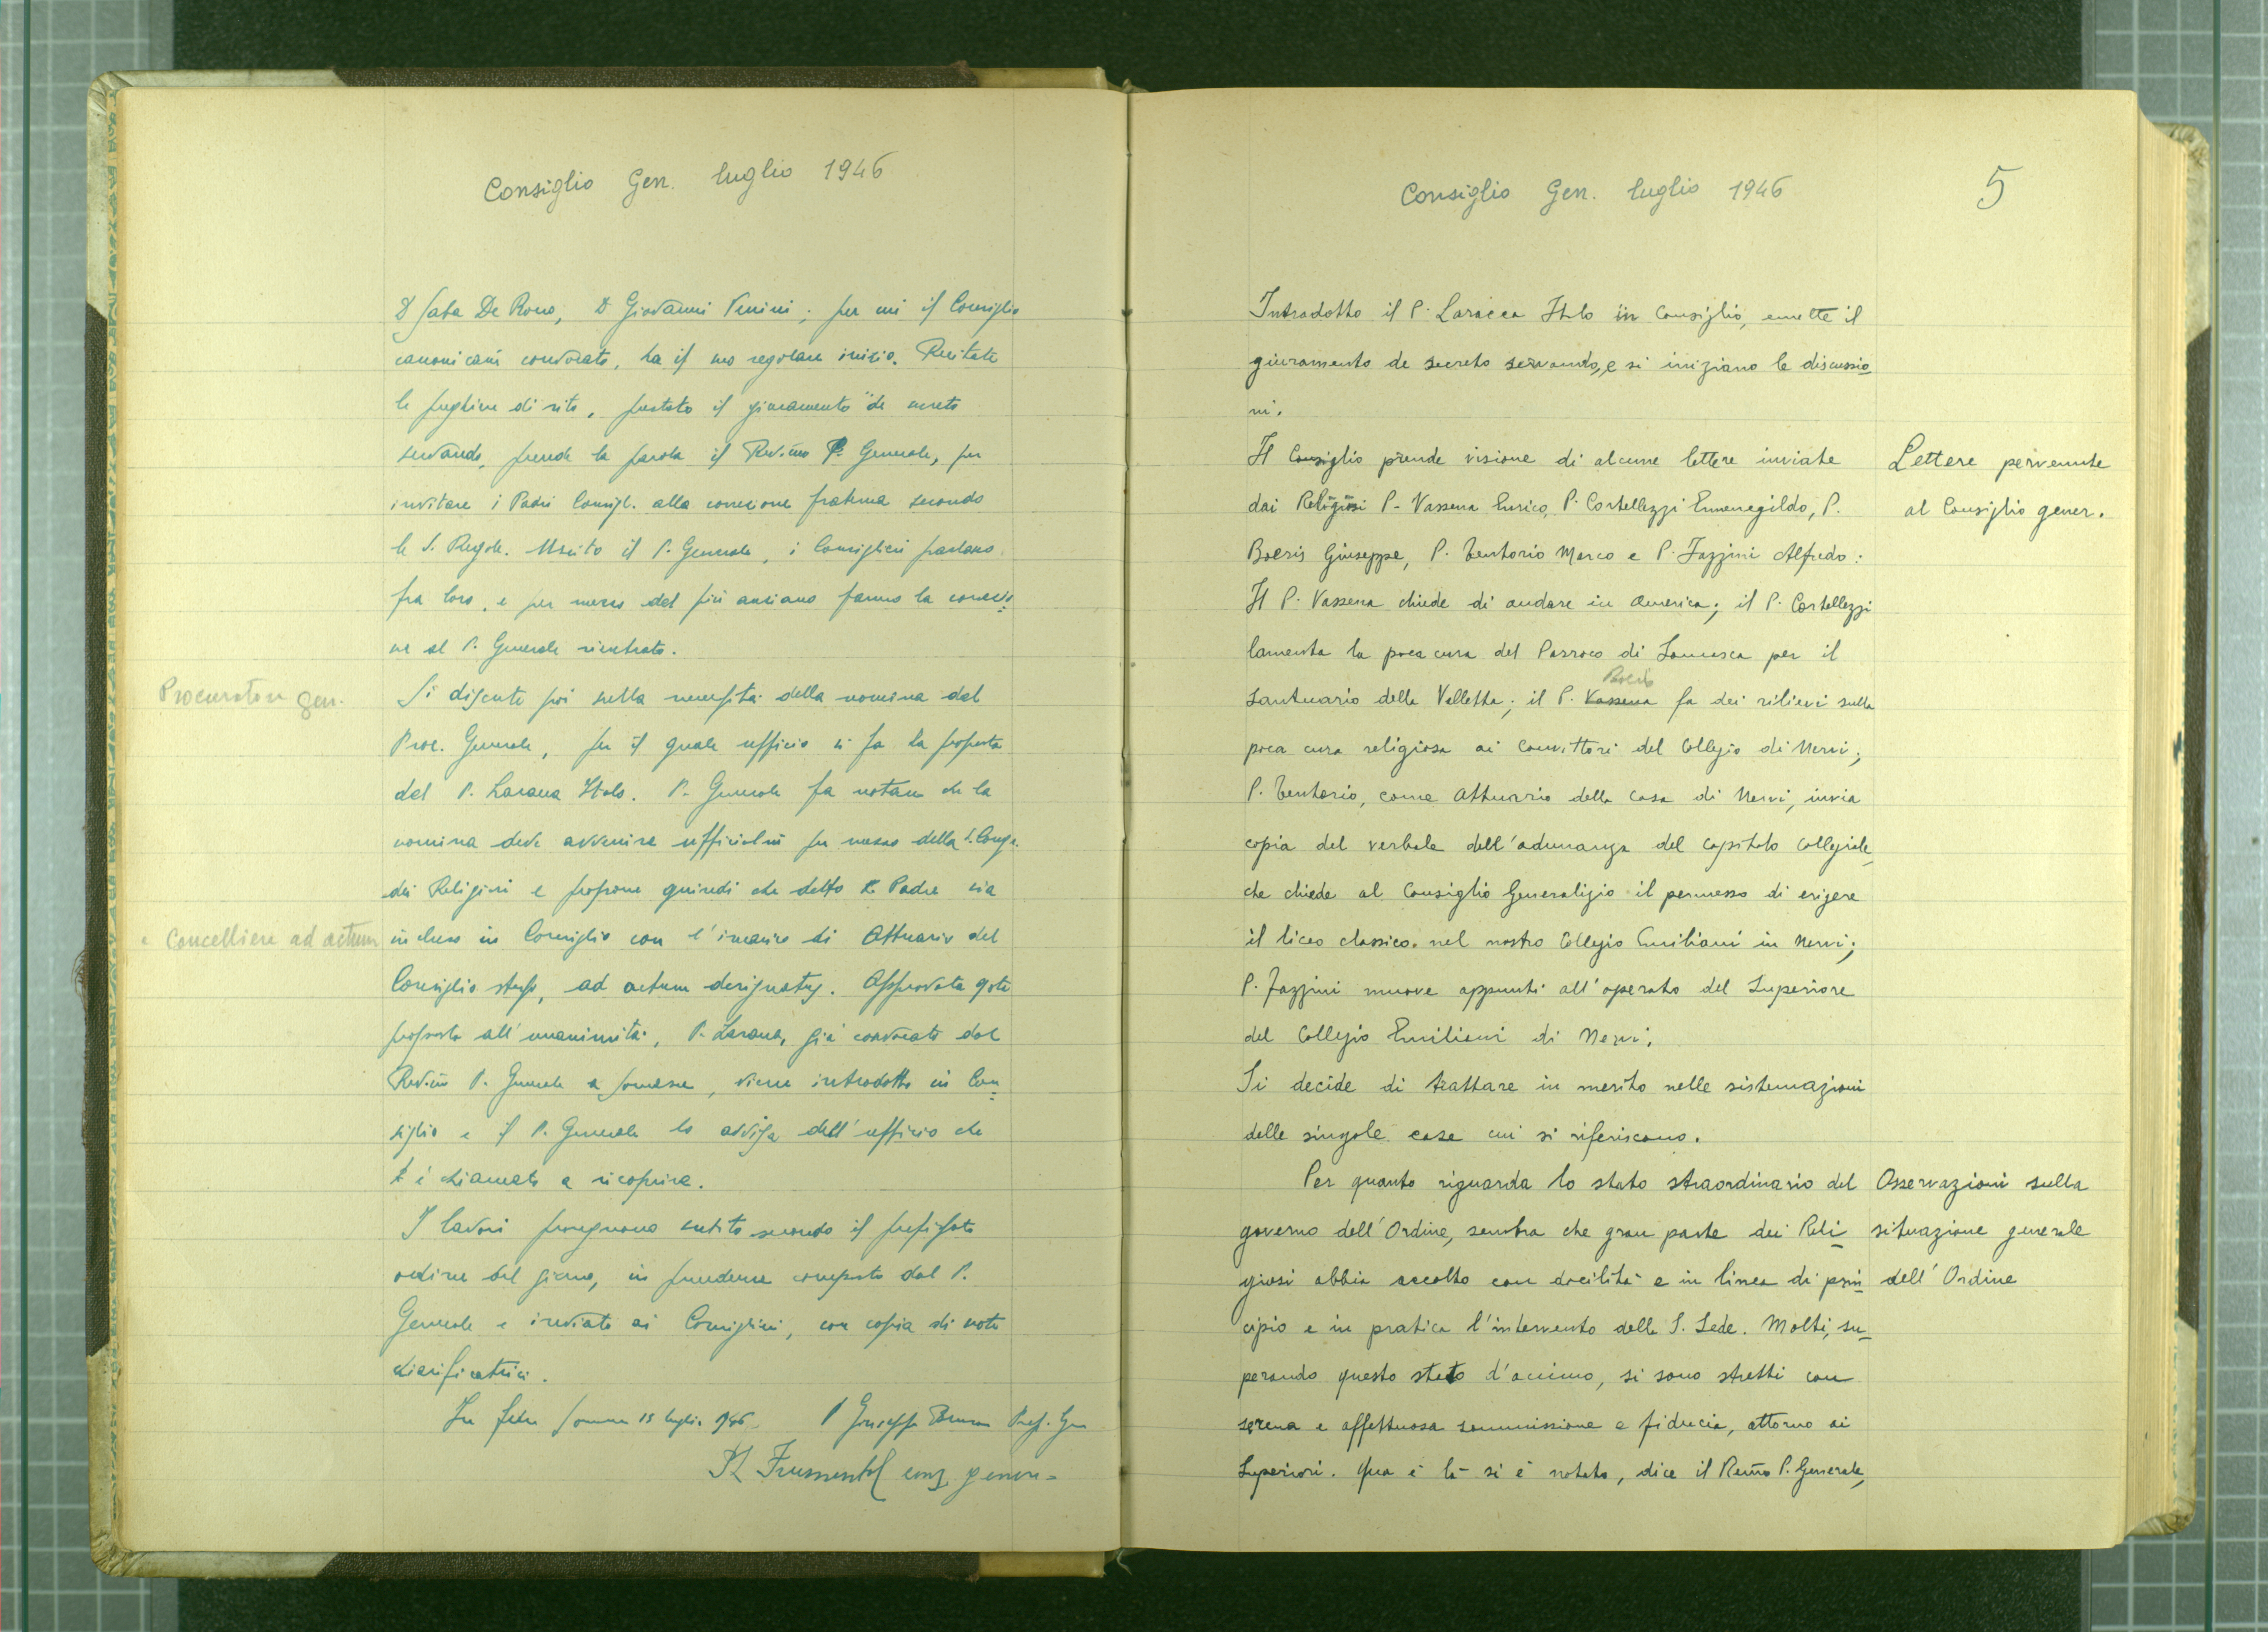 Consiglio Gen. luglio 1946
P. Saba De Rocco, P. Giovanni Venini; per cui il Consiglio
canonicam̃ convocato, ha il suo regolare inizio. Recitate
le preghiere di rito, prestato il giuramento "de secreto
servando, prende la parola il Rev.mo P. Generale, per
invitare i Padri Consigl. alla correzione fraterna secondo
le S. Regole. Uscito il P. Generale, i Consiglieri parlano
fra loro, e per mezzo del più anziano fanno la correzio
ne al P. Generale rientrato.
Procuratore gen.
Si discute poi sulla necessità della nomina del
Proc. Generale, per il quale ufficio si fa la proposta
del P. Laracca Italo. P. Generale fa notare che la
nomina deve avvenire ufficialm̃ per mezzo della S. Congr.
dei Religiosi e propone quindi che detto Padre sia
e Cancelliere ad actum
incluso in Consiglio con l'incarico di Attuario del
Consiglio stesso, ad actum designatus. Approvata qta
proposta all'unanimità, P. Laracca, già convocato dal
Rev.mo P. Generale a Somasca, viene introdotto in Con
siglio e il P. Generale lo avvisa dell'ufficio che
è chiamato a ricoprire.
I lavori proseguono subito secondo il prefissato
ordine del giorno, in precedenza composto dal P.
Generale e inviato ai Consiglieri, con copia di note
chiarificatrici.
In fede Somasca 15 luglio 1946 P Giuseppe Prep. Gen
cons. gener.
Consiglio Gen. luglio 1946
5
Introdotto il P. Laracca Italo in Consiglio, emette il
giuramento de secreto servando, e si iniziano le discussio
ni.
Il Consiglio prende visione di alcune lettere inviate
Lettere pervenute
dai Religiosi P. Vassena Enrico, P. Cortellezzi Ermenegildo, P.
al Consiglio gener.
Boeris Giuseppe, P. Tentorio Marco e P. Fazzini Alfredo:
Il P. Vassena chiede di andare in America; il P. Cortellezzi
lamenta la poca cura del Parroco di Somasca per il
Boeris
Santuario della Valletta; il P. Vassena fa dei rilievi sulla
poca cura religiosa ai Convittori del Collegio di Nervi;
P. Tentorio, come Attuario della Casa di Nervi, invia
copia del verbale dell'adunanza del Capitolo Collegiale,
che chiede al Consiglio Generalizio il permesso di erigere
il liceo classico nel nostro Collegio Emiliani in Nervi;
P. Fazzini muove appunti all'operato del Superiore
del Collegio Emiliani di Nervi.
Si decide di trattare in merito nelle sistemazioni
delle singole case cui si riferiscono.
Per quanto riguarda lo stato straordinario del
Osservazioni sulla
governo dell'Ordine, sembra che gran parte dei Reli
situazione generale
giosi abbia accolto con docilità e in linea di prin
dell'Ordine
cipio e in pratica l'intervento della S. Sede. Molti, su_
perando questo stato d'animo, si sono stretti con
serena e affettuosa sommissione e fiducia, attorno ai
Superiori. Qua e là si è notato, dice il Rev̄mo P. Generale,